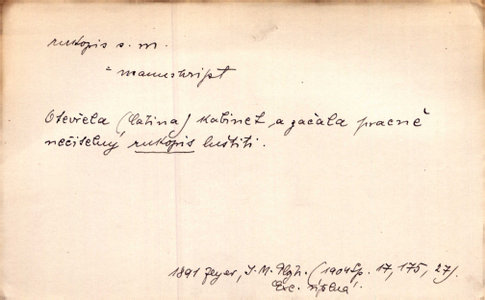 rukopis s. m.
= manuskript
Otevřela (Zatina) kabinet a začala pracně
nečitelný rukopis luštiti.
1891 Zeyer, J. M. Plojh. (1904 Sp. 17, 175, 27).
Exc. úplná.